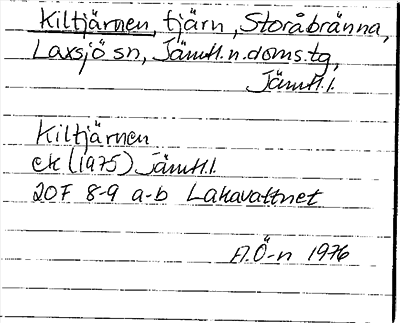 Kiltjärnen, tjärn, Storåbränna,
Laxsjö sn, Jämtl.n.doms.tg,
Jämtl.l.
Kiltjärnen
ek (1975) Jämtl.l.
20F 8-9 a-b Lakavattnet
A.Ö-n 1976